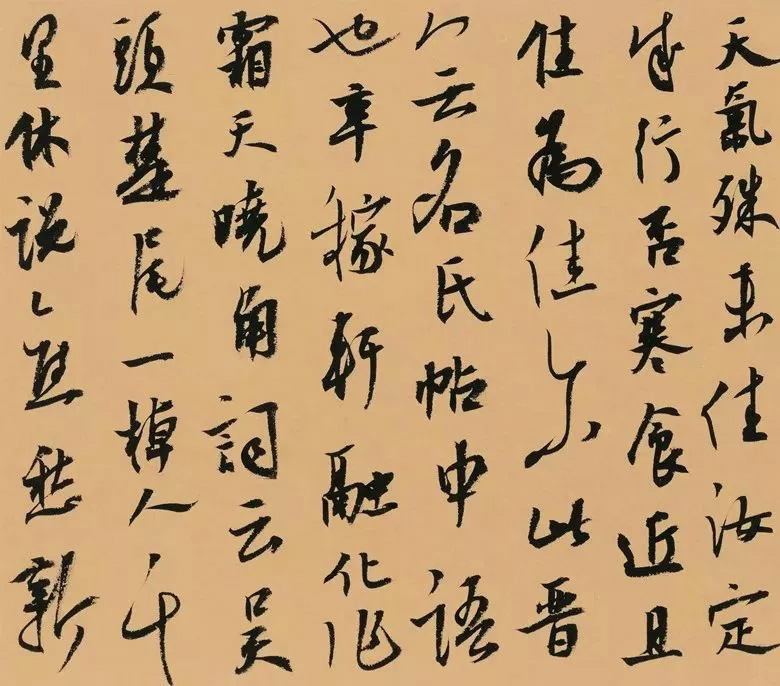 天氣殊未佳汝定
成行否寒食近且
住為佳尔此晋
人无名氏帖中語
也辛稼軒融化作
霜天曉角詞云吴
頭楚尾一棹人千
里休説舊愁新